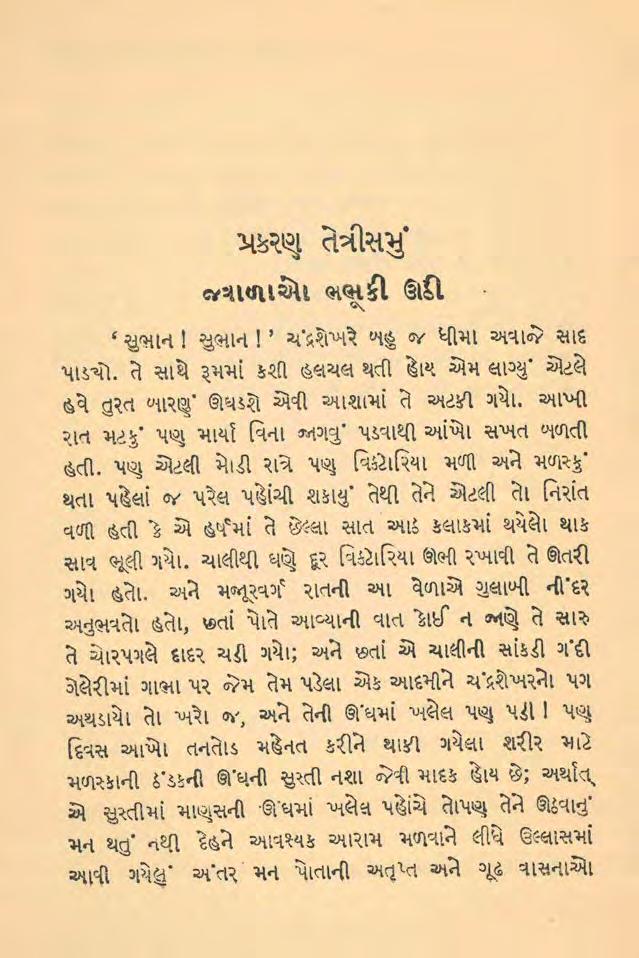 પ્રકરણ તેત્રીસમું
જ્વાળાઓ ભભૂકી ઊઠી
‘સુભાન! સુભાન!’ ચંદ્રશેખરે બહુ જ ધીમા અવાજે સાદ
પાડ્યો. તે સાથે રૂમમાં કશી હલચલ થતી હોય એમ લાગ્યું એટલે
હવે તુરત બારણું ઊઘડશે એવી આશામાં તે અટકી ગયો. આખી
રાત મટકું પણ માર્યા વિના જાગવું પડવાથી આંખો સખત બળતી
હતી. પણ એટલી મોડી રાત્રે પણ વિક્ટોરિયા મળી અને મળસ્કું
થતા પહેલાં જ પરેલ પહોંચી શકાયું તેથી તેને એટલી તો નિરાંત
વળી હતી કે એ હર્ષમાં તે છેલ્લા સાત આઠ કલાકમાં થયેલો થાક
સાવ ભૂલી ગયો. ચાલીથી ઘણે દૂર વિક્ટોરિયા ઊભી રખાવી તે ઊતરી
ગયો હતો. અને મજૂરવર્ગ રાતની આ વેળાએ ગુલાબી નીંદર
અનુભવતો હતો, છતાં પોતે આવ્યાની વાત કોઈ ન જાણે તે સારુ
તે ચોરપગલે દાદર ચડી ગયો; અને છતાં એ ચાલીની સાંકડી ગંદી
ગેલેરીમાં ગાભા પર જેમ તેમ પડેલા એક આદમીને ચંદ્રશેખરનો પગ
અથડાયો તો ખરો જ, અને તેની ઊંઘમાં ખલેલ પણ પડી! પણ
દિવસ આખો તનતોડ મહેનત કરીને થાકી ગયેલા શરીર માટે
મળસ્કાની ઠંડકની ઊંઘની સુસ્તી નશા જેવી માદક હોય છે; અર્થાત્
એ સુસ્તીમાં માણસની ઊંઘમાં ખલેલ પહોંચે તોપણ તેને ઊઠવાનું
મન થતું નથી દેહને આવશ્યક આરામ મળવાને લીધે ઉલ્લાસમાં
આવી ગયેલું અંતર મન પોતાની અતૃપ્ત અને ગૂઢ વાસનાઓ